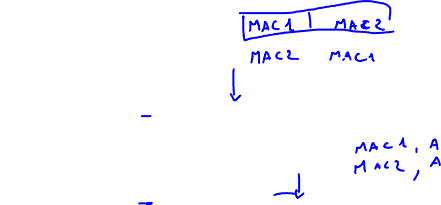 MAC1 | MAC2
MAC2 MAC1
-
MAC1, A
MAC2, A
-